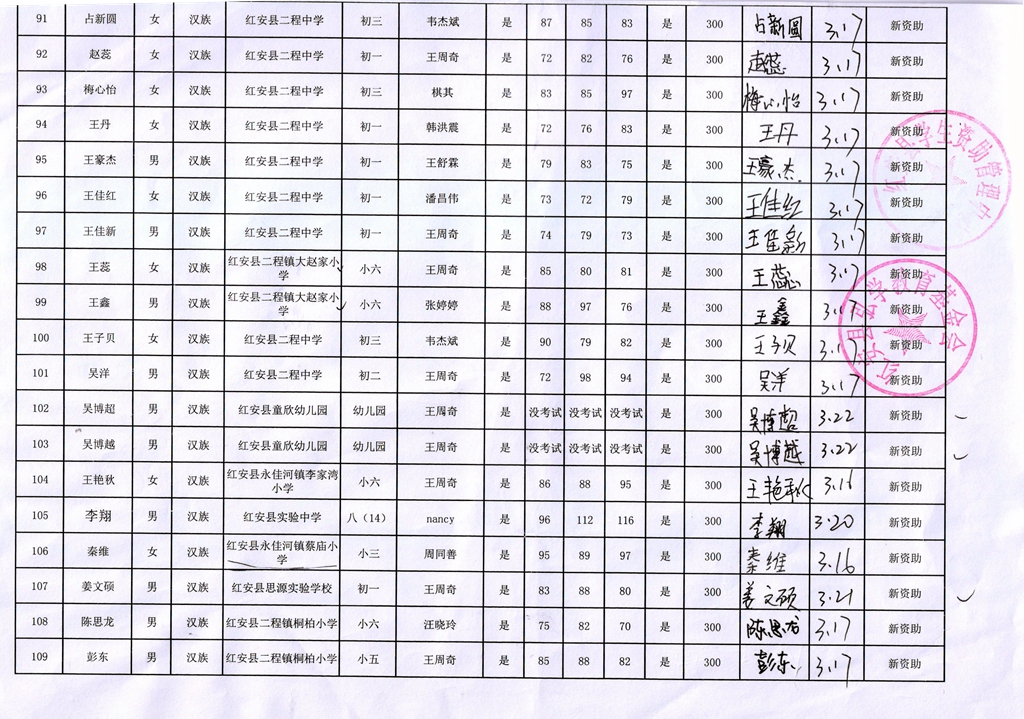 91 占新圆 女 汉族 红安县二程中学 初三 韦杰斌 是 87 85 83 是 300 占新圆 3.17 新资助
92 赵蕊 女 汉族 红安县二程中学 初一 王周奇 是 72 82 76 是 300 赵蕊 3.17 新资助
93 梅心怡 女 汉族 红安县二程中学 初三 棋其 是 83 85 97 是 300 梅心怡 3.17 新资助
94 王丹 女 汉族 红安县二程中学 初一 韩洪震 是 72 76 83 是 300 王丹 3.17 新资助
95 王豪杰 男 汉族 红安县二程中学 初一 王舒霖 是 79 83 75 是 300 王豪杰 3.17 新资助
96 王佳红 女 汉族 红安县二程中学 初一 潘昌伟 是 73 72 79 是 300 王佳红 3.17 新资助
97 王佳新 男 汉族 红安县二程中学 初一 王周奇 是 74 79 73 是 300 王佳新 3.17 新资助
98 王蕊 女 汉族 红安县二程镇大赵家小学 小六 王周奇 是 85 80 81 是 300 王蕊 3.17 新资助
99 王鑫 男 汉族 红安县二程镇大赵家小学 小六 张婷婷 是 88 97 76 是 300 王鑫 3.17 新资助
100 王子贝 女 汉族 红安县二程中学 初三 韦杰斌 是 90 79 82 是 300 王子贝 3.17 新资助
101 吴洋 男 汉族 红安县二程中学 初二 王周奇 是 72 98 94 是 300 吴洋 3.17 新资助
102 吴博超 男 汉族 红安县童欣幼儿园 幼儿园 王周奇 是 没考试 没考试 没考试 是 300 吴博超 3.22 新资助
103 吴博越 男 汉族 红安县童欣幼儿园 幼儿园 王周奇 是 没考试 没考试 没考试 是 300 吴博越 3.22 新资助
104 王艳秋 女 汉族 红安县永佳河镇李家湾小学 小六 王周奇 是 86 88 95 是 300 王艳秋 3.16 新资助
105 李翔 男 汉族 红安县实验中学 八（14） nancy 是 96 112 116 是 300 李翔 3.20 新资助
106 秦维 女 汉族 红安县永佳河镇蔡庙小学 小三 周同善 是 95 89 97 是 300 秦维 3.16 新资助
107 姜文硕 男 汉族 红安县思源实验学校 初一 王周奇 是 83 88 80 是 300 姜文硕 3.21 新资助
108 陈思龙 男 汉族 红安县二程镇桐柏小学 小六 汪晓玲 是 75 82 70 是 300 陈思龙 3.17 新资助
109 彭东 男 汉族 红安县二程镇桐柏小学 小五 王周奇 是 85 88 82 是 300 彭东 3.17 新资助
县学生资助管理
红安县 学教育基金会